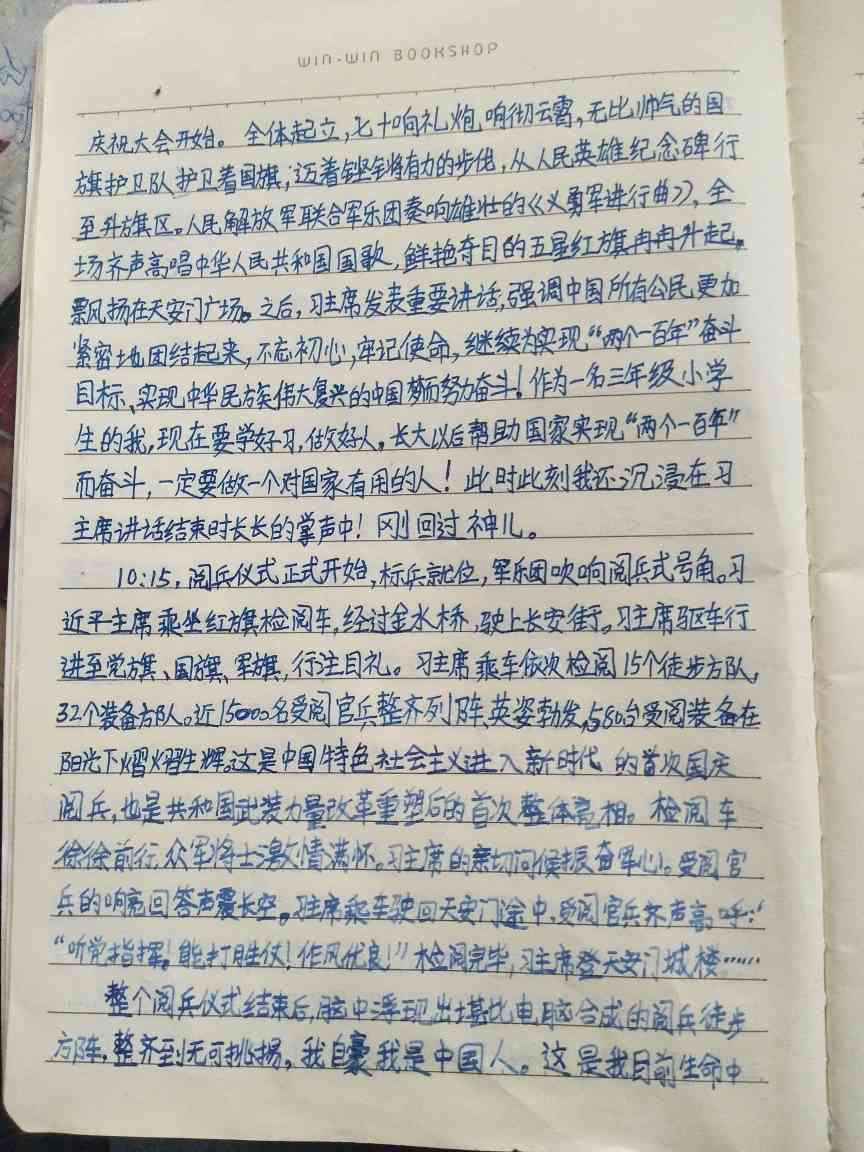 WIN-WIN BOOKSHOP
庆祝大会开始。全体起立,七十响礼炮响彻云霄,无比帅气的国
旗护卫队护卫着国旗,迈着铿锵有力的步伐,从人民英雄纪念碑行
至升旗区。人民解放军联合军乐团奏响雄壮的《义勇军进行曲》,全
场齐声高唱中华人民共和国国歌,鲜艳夺目的五星红旗冉冉升起,
飘扬在天安门广场。之后,习主席发表重要讲话,强调中国所有公民更加
紧密地团结起来,不忘初心,牢记使命,继续为实现“两个一百年”奋斗
目标、实现中华民族伟大复兴的中国梦而努力奋斗!作为一名三年级小学
生的我,现在要学好习,做好人,长大以后帮助国家实现“两个一百年”
而奋斗,一定要做一个对国家有用的人!此时此刻我还沉浸在习
主席讲话结束时长长的掌声中!刚回过神儿。
10:15,阅兵仪式正式开始,标兵就位,军乐团吹响阅兵式号角。习
近平主席乘坐红旗检阅车,经过金水桥,驶上长安街。习主席驱车行
进至党旗、国旗、军旗,行注目礼。习主席乘车依次检阅15个徒步方队,
32个装备方队。近15000名受阅官兵整齐列阵、英姿勃发,580台受阅装备在
阳光下熠熠生辉。这是中国特色社会主义进入新时代的首次国庆
阅兵,也是共和国武装力量改革重塑后的首次整体亮相。检阅车
徐徐前行,众军将士激情满怀。习主席的亲切问候振奋军心。受阅官
兵的响亮回答声震长空。习主席乘车驶回天安门途中,受阅官兵齐声高呼:
“听党指挥!能打胜仗!作风优良!”检阅完毕,习主席登天安门城楼……
整个阅兵仪式结束后,脑中浮现出堪比电脑合成的阅兵徒步
方阵,整齐到无可挑揚,我自豪我是中国人。这是我目前生命中